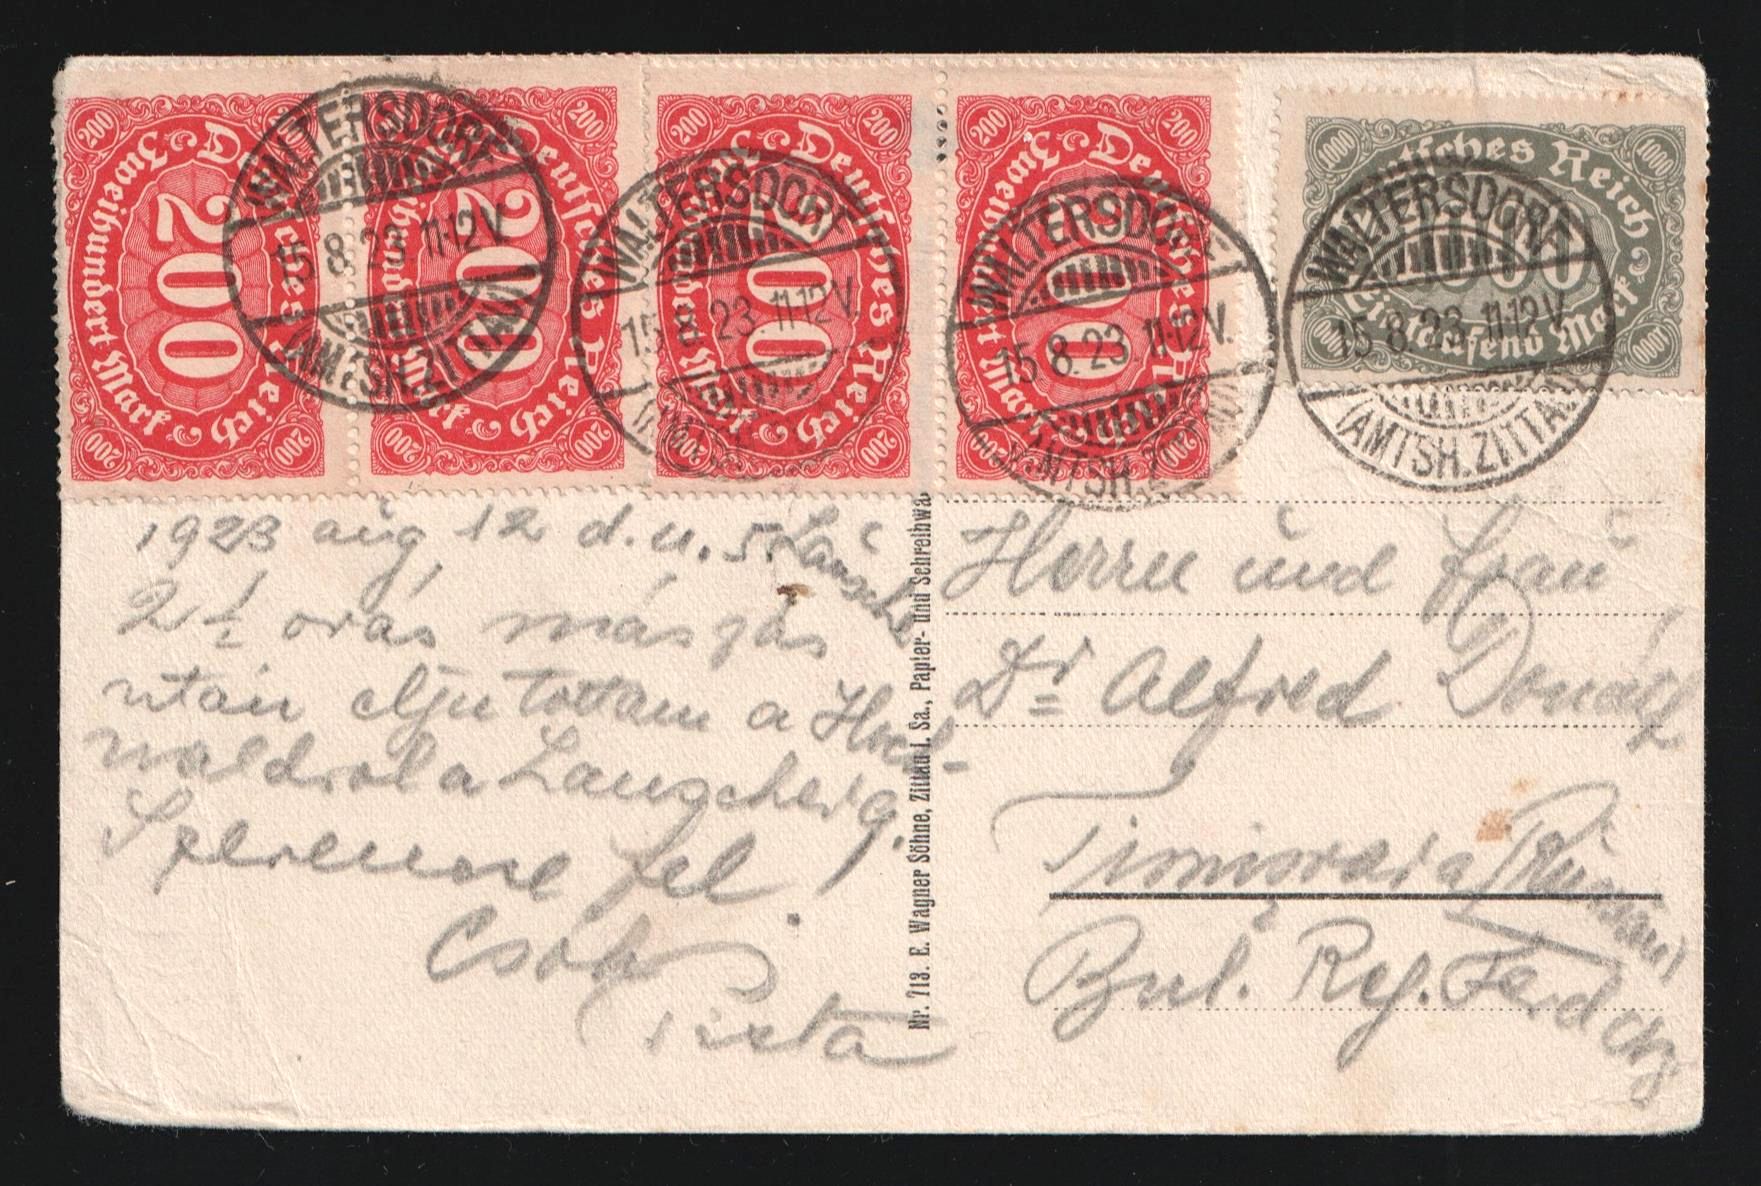 200 200
Deutsches Reich
200
Zweihundert Mark
200 200
200 200
Deutsches Reich
200
Zweihundert Mark
200
200 200
Deutsches Reich
200
Zweihundert Mark
200
200 200
Deutsches Reich
200
Zweihundert Mark
200
1000 1000
Deutsches Reich
1000
Eintausend Mark
1000 1000
WALTERSDORF
15.8.23 11-12V.
(AMTSH. ZITTAU)
WALTERSDORF
15.8.23 11-12V.
(AMTSH.
WALTERSDORF
15.8.23 11-12V.
(AMTSH. ZITTAU)
WALTERSDORF
15.8.23 11-12V.
(AMTSH. ZITTAU)
1923 aug, 12 d.u. 5 Lausche
2½ órás mászás
után eljutottam a Hoch-
waldról a Lauscheig.
Szerencse fel!
Csók
Pista
Nr. 713. E. Wagner Söhne, Zittau i. Sa., Papier- und Schreibwa
Herrn und Frau
Dr Alfred
Timisoara
Bul. Reg. Ferd